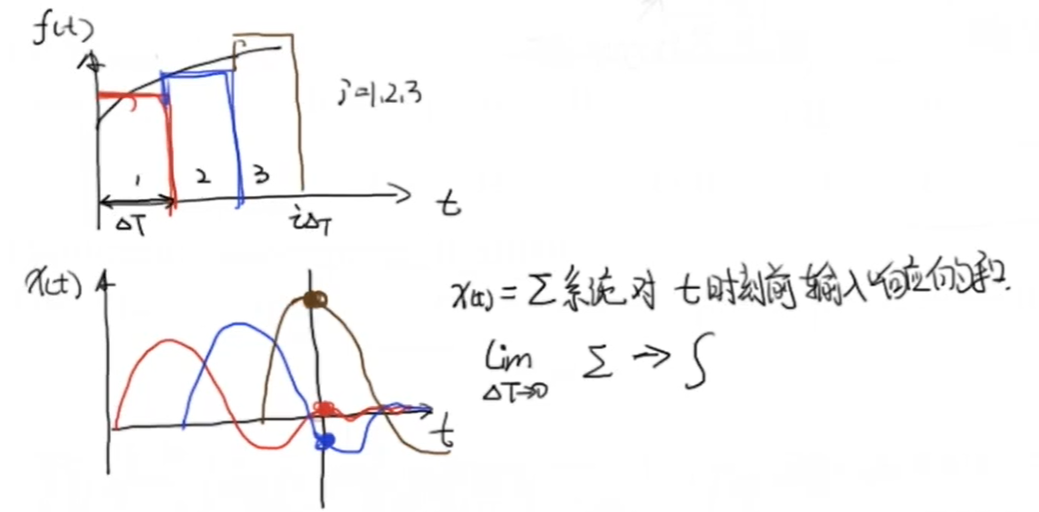 f(t)
i=1.2.3
1 2 3
ΔT iΔT t
x(t)
x(t) = Σ系统对 t时刻前输入响应的和.
lim Σ → ∫
ΔT→0
t